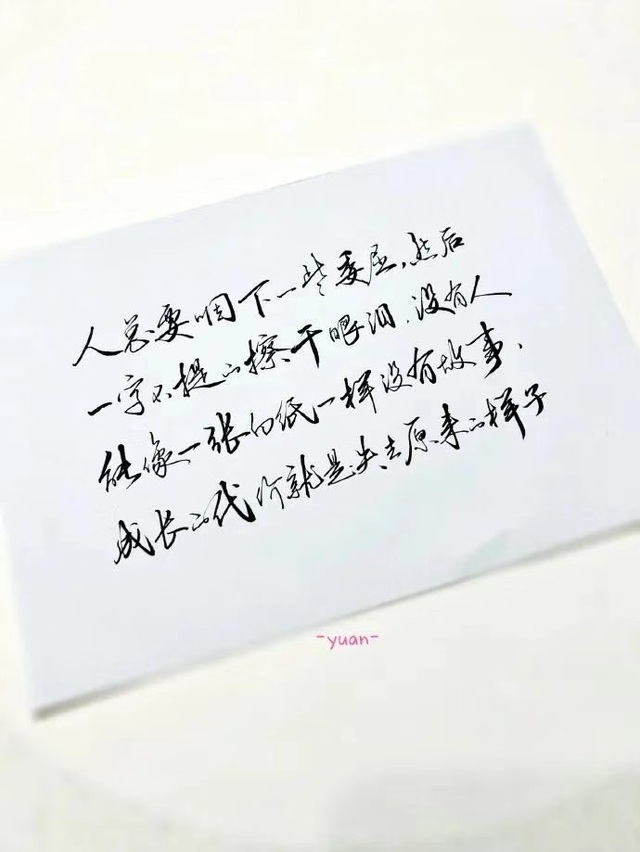 人总要咽下一些委屈,然后
一字不提的擦干眼泪,没有人
能像一张白纸一样没有故事,
成长的代价就是失去原来的样子
-yuan-